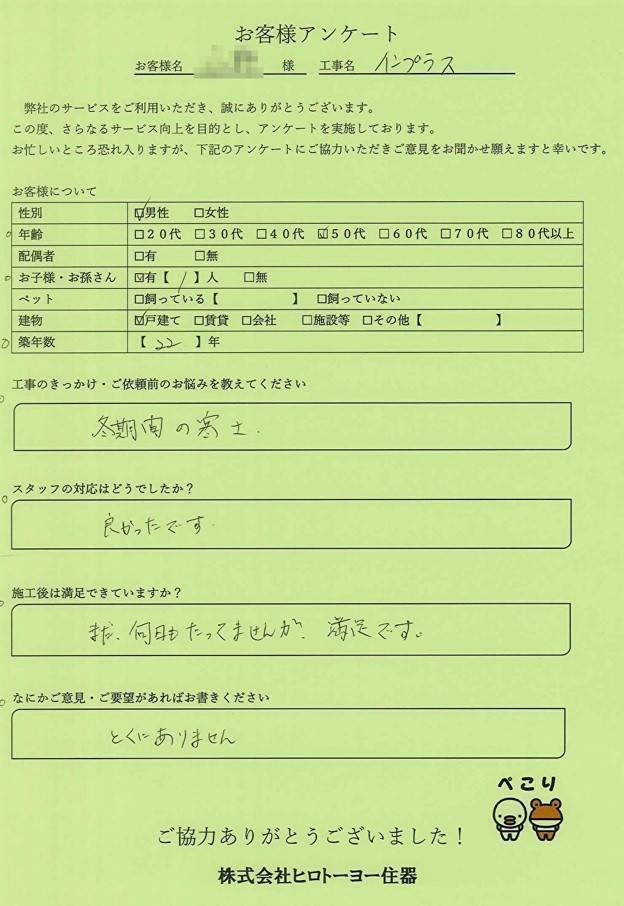 お客様アンケート
お客様名 様 工事名 インプラス
弊社のサービスをご利用いただき、誠にありがとうございます。
この度、さらなるサービス向上を目的とし、アンケートを実施しております。
お忙しいところ恐れ入りますが、下記のアンケートにご協力いただきご意見をお聞かせ願えますと幸いです。
お客様について
性別 ☑男性 □女性
年齢 □20代 □30代 □40代 ☑50代 □60代 □70代 □80代以上
配偶者 □有 □無
お子様・お孫さん ☑有【 1 】人 □無
ペット □飼っている【 】 □飼っていない
建物 ☑戸建て □賃貸 □会社 □施設等 □その他【 】
築年数 【 22 】年
工事のきっかけ・ご依頼前のお悩みを教えてください
冬期間の寒さ.
スタッフの対応はどうでしたか？
良かったです.
施工後は満足できていますか？
まだ、何日もたってませんが、満足です。
なにかご意見・ご要望があればお書きください
とくにありません
ぺこり
ご協力ありがとうございました！
株式会社ヒロトーヨー住器